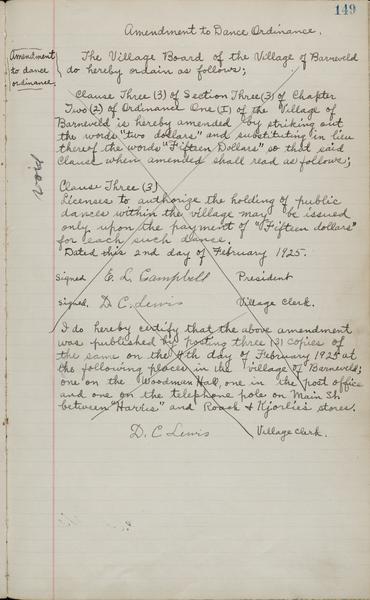 149
Amendment to Dance Ordinance.
Amendment
to dance
ordinance.
The Village Board of the Village of Barneveld
do hereby ordain as follows;
Clause Three (3) of Section Three (3) of Chapter
Two (2) of Ordinance One (1) of the Village of
Barneveld is hereby amended by striking out
the words "two dollars" and substituting in lieu
thereof the words "Fifteen Dollars" so that said
Clause when amended shall read as follows;
Void
Clause Three (3)
Licenses to authorize the holding of public
dances within the village may be issued
only upon the payment of "Fifteen dollars"
for each such dance.
Dated this 2nd day of February 1925.
Signed E. L. Campbell President
Signed. D. C. Lewis Village Clerk.
I do hereby certify that the above amendment
was published by posting three (3) copies of
the same on the 4th day of February 1925 at
the following places in the village of Barneveld;
one on the Woodman Hall, one in the post office
and one on the telephone pole on Main St.
between "Harris" and Roach & Kjorlie's stores.
D. C Lewis Village Clerk.